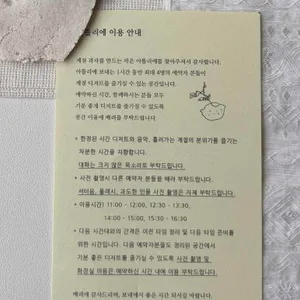 아틀리에 이용 안내
계절 과자를 만드는 작은 아틀리에를 찾아주셔서 감사합니다.
아틀리에 보내는 1시간 동안 최대 4명의 예약자 분들이
계절 디저트를 즐기실 수 있는 공간입니다.
예약하신 시간, 함께하시는 분들 모두
기분 좋게 디저트를 즐기실 수 있도록
공간 이용에 배려를 부탁드립니다.
* 한정된 시간 디저트와 음악, 흘러가는 계절의 분위기를 즐기는
차분한 시간을 지향합니다.
대화는 크지 않은 목소리로 부탁드립니다.
* 사진 촬영시 다른 예약자 분들을 배려 부탁드립니다.
셔터음, 플래시, 과도한 인물 사진 촬영은 자제 부탁드립니다.
* 이용시간) 11:00 - 12:00, 12:30 - 13:30,
14:00 - 15:00, 15:30 - 16:30
* 다음 시간대와의 간격은 이전 타임 정리 및 다음 타임 준비를
위한 시간입니다. 다음 예약자분들도 정리된 공간에서
기분 좋은 디저트를 즐기실 수 있도록 사진 촬영 및
화장실 이용은 예약하신 시간 내에 이용 부탁드립니다.
배려에 감사드리며, 보내에서 좋은 시간 되시길 바랍니다.